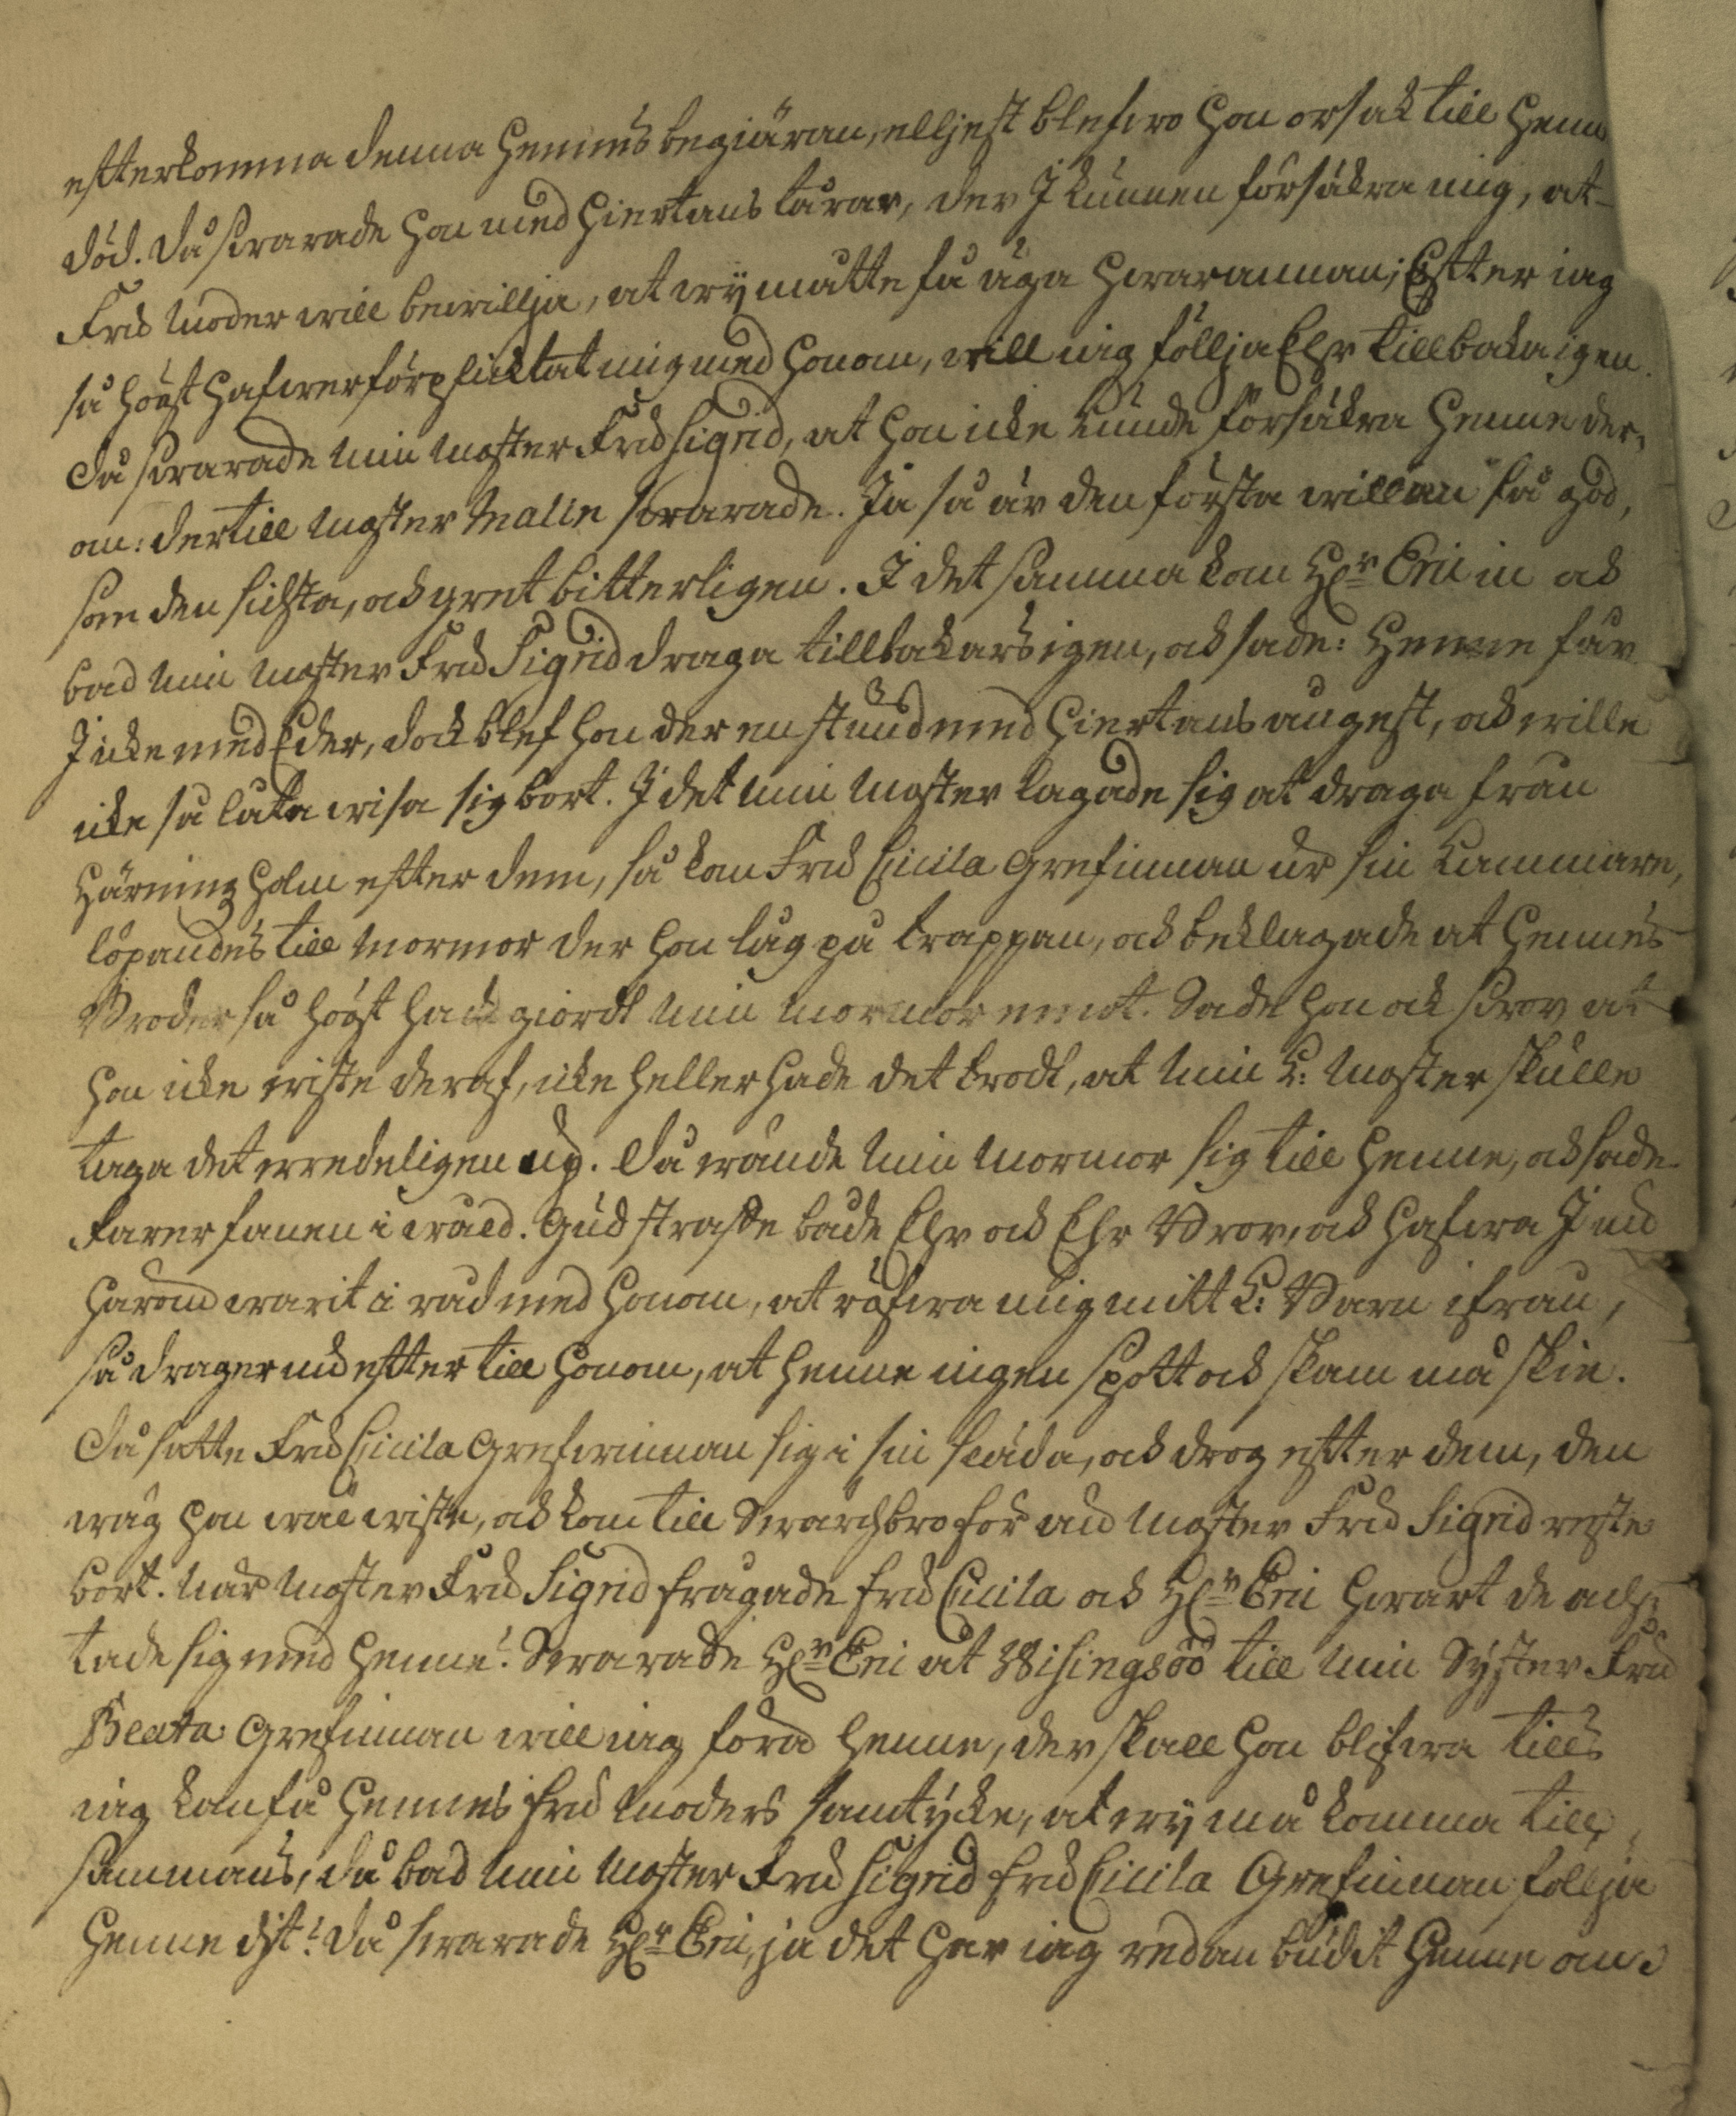 effterkomma denna hennes begiäran, elljest blefwo hon orsak till henn
död. Då swarade hon med hiertans tårar, der I kunnen försäkra mig, at
Fru Moder will bewillja, at wÿ måtte få äga hwarannan; Effter iag
så högt hafwer förpflicktat mig med honom, will iag föllja Ehr tillbaka igen.
Då swarade min Moster Fru Sigrid, at hon icke kunde försäkra henne der,
om: dertill Moster Malin swarade. Ja så är den första willan så god,
som den sidsta, ock gret bitterligen. I det samma kom Hr Eric in ock
bad min Moster Fru Sigrid draga tillbakars igen, ock sade: Henne får
I icke med Eder, dock blef hon der en stund med hiertans angest, ock wille
icke så låta wisa sig bort. I det min Moster lagade sig at draga från
Häringholm effter dem, så kom Fru Cicila Grefinnan ur sin Cammare,
löpandes till Mormor der hon låg på trappan, ock beklagade at hennes
Broder så högt hade giordt min Mormor emot. Sade hon ock swor at
hon icke wiste deraf, icke heller hade det trodt, at min K: Moster skulle
taga det wredeligen up. Då wände min Mormor sig till henne, ock sade
Farer fanen i wåld. Gud straffe både Ehr ock Ehr Bror, ock hafwa I nu
härom warit i råd med honom, at röfwa mig mitt K: Barn ifrån,
så drager nu effter till honom, at henne ingen spott ock skam må skie.
Då satte Fru Cicila Grefwinnan sig i sin släda, ock drog effter dem, den
wäg hon wäl wiste, ock kom till Swarchbro för än Moster Fru Sigrid reste
bort. När Moster Fru Sigrid frågade Fru Cicila ock Hr Eric hwart de ach,
tade sig med henne? Swarade Hr Eric at Wisingsöö till min Sÿster Fru
Beata Grefinnan will iag föra henne, der skall hon blifwa tills
iag kan få hennes Fru Moders samtÿcke, at wÿ må komma till,
sammans, då bad min Moster Fru Sigrid Fru Cicila Grefinnan föllja
henne dÿt? Då swarade Hr Eric, ja det har iag redan budit henne om.